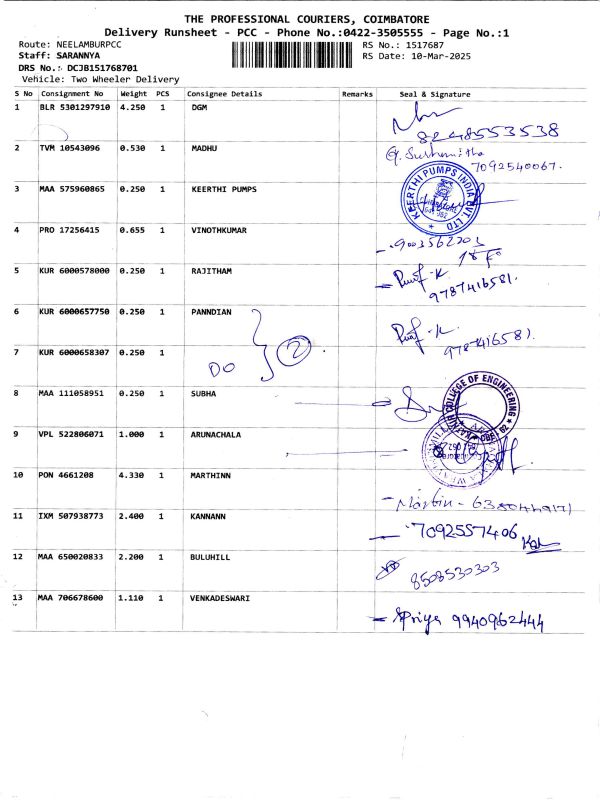 THE PROFESSIONAL COURIERS, COIMBATORE
Delivery Runsheet - PCC - Phone No.:0422-3505555 - Page No.:1
Route: NEELAMBURPCC RS No.: 1517687
Staff: SARANNYA RS Date: 10-Mar-2025
DRS No.: DCJB151768701
Vehicle: Two Wheeler Delivery
S No Consignment No Weight PCS Consignee Details Remarks Seal & Signature
1 BLR 5301297910 4.250 1 DGM
8248553538
2 TVM 10543096 0.530 1 MADHU
7092540067.
3 MAA 575960865 0.250 1 KEERTHI PUMPS
KEERTHI PUMPS INDIA PVT. LTD
4 PRO 17256415 0.655 1 VINOTHKUMAR
9003562203
5 KUR 6000578000 0.250 1 RAJITHAM
9787416581.
6 KUR 6000657750 0.250 1 PANNDIAN
9787416581.
7 KUR 6000658307 0.250 1
DO 2
8 MAA 111058951 0.250 1 SUBHA
COLLEGE OF ENGINEERING
9 VPL 522806071 1.000 1 ARUNACHALA
10 PON 4661208 4.330 1 MARTHINN
Martin -
11 IXM 507938773 2.400 1 KANNANN
7092557406
12 MAA 650020833 2.200 1 BULUHILL
8508530303
13 MAA 706678600 1.110 1 VENKADESWARI
Priya 9940962444